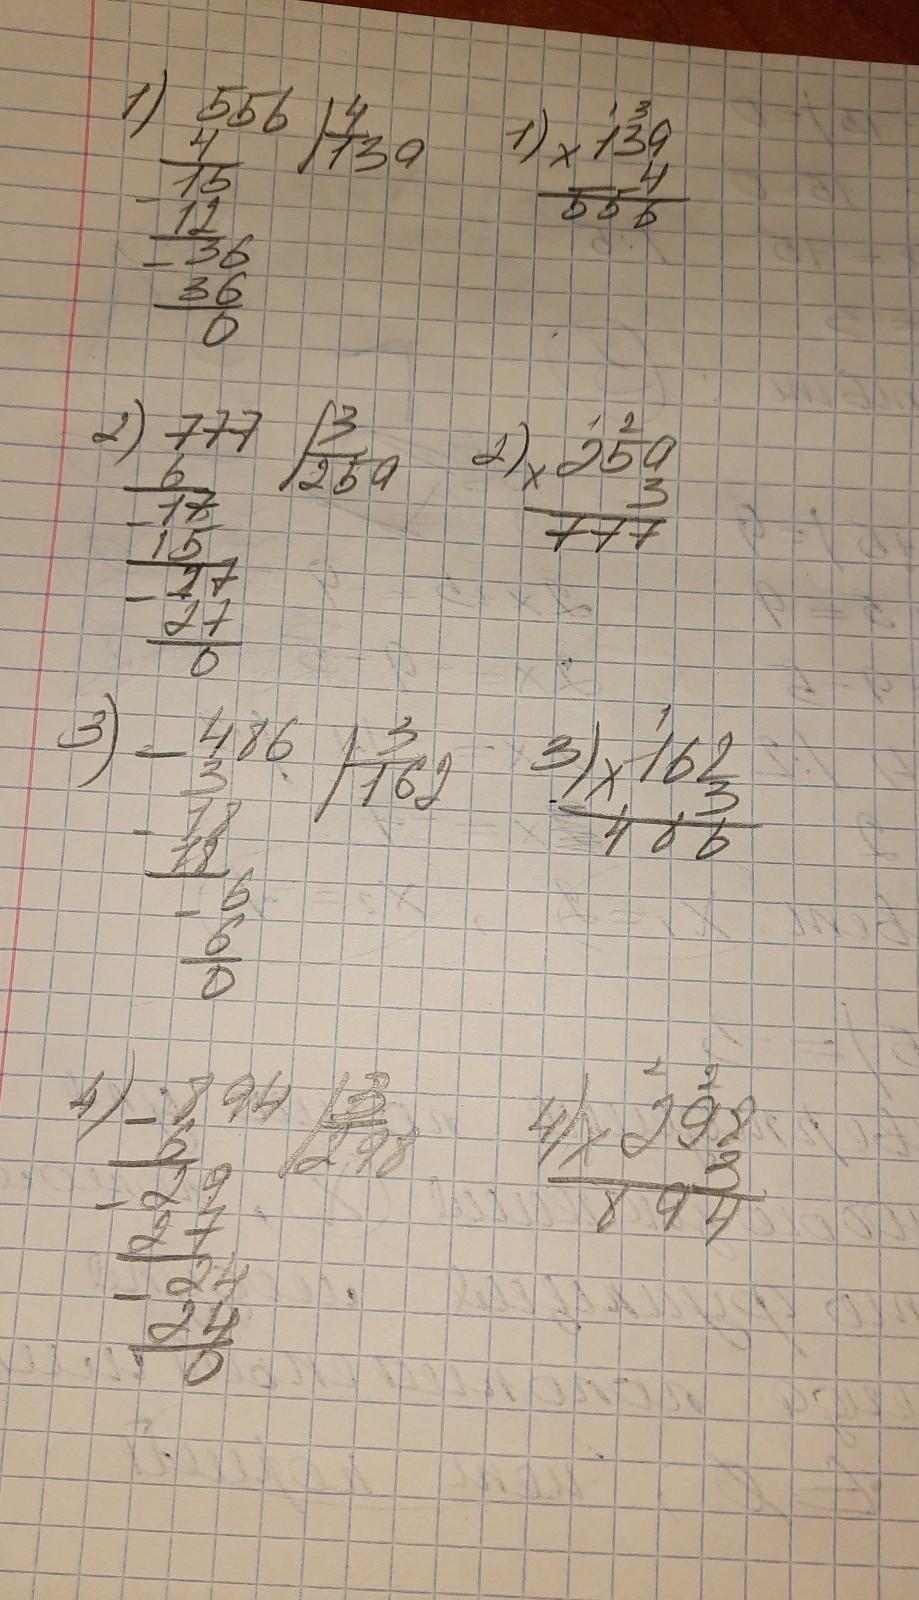 1) 556 | 4
4 139
- 15
12
- 36
36
0
1) × 139
4
556
2) 777 | 3
6 259
- 17
15
- 27
27
0
2) × 259
3
777
3) - 486 | 3
3 162
- 18
18
- 6
6
0
3) × 162
3
486
4) - 894 | 3
6 298
- 29
27
- 24
24
0
4) × 298
3
894